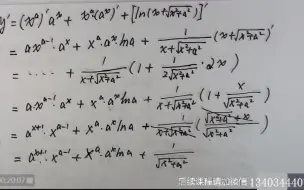 y' = (x^a)' a^x + x^a (a^x)' + [ln(x+√(x²+a²))]'
= a x^(a-1) · a^x + x^a · a^x lna + 1/(x+√(x²+a²)) (x+√(x²+a²))'
= ······ + 1/(x+√(x²+a²)) (1 + 1/(2√(x²+a²)) · 2x)
= a·x^(a-1) · a^x + x^a · a^x lna + 1/(x+√(x²+a²)) (1 + x/√(x²+a²))
= a^(x+1) · x^(a-1) + x^a · a^x lna + 1/(x+√(x²+a²)) ((√(x²+a²)+x)/√(x²+a²))
= a^(x+1) · x^(a-1) + x^a · a^x lna + 1/√(x²+a²)
134034440